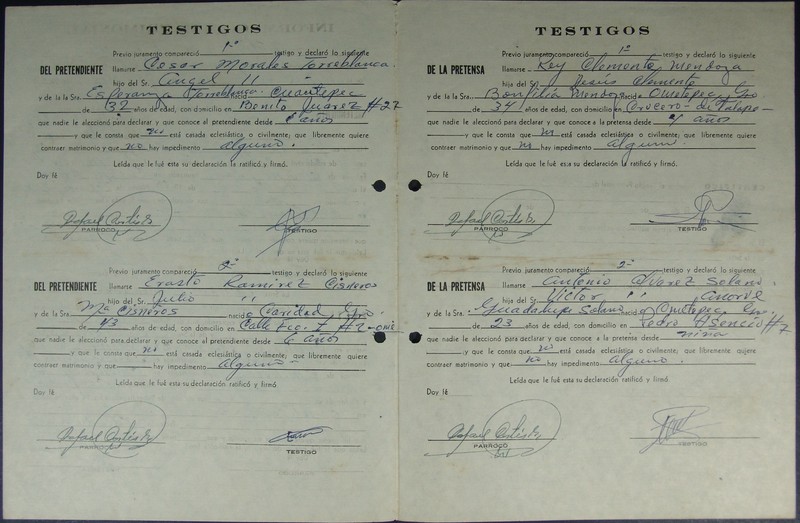 TESTIGOS
Previo juramento compareció 1º testigo y declaró lo siguiente
DEL PRETENDIENTE llamarse Cesar Morales Torreblanca.
hijo del Sr. Angel " "
y de la Sra. Esperanza Torreblanca nació Cuautepec
de 32 años de edad, con domicilio en Benito Juarez #27
que nadie le aleccionó para declarar y que conoce al pretendiente desde años
y que le consta que no está casada eclesiástica o civilmente; que libremente quiere
contraer matrimonio y que no hay impedimento alguno.
Leída que le fué esta su declaración la ratificó y firmó.
Doy fé
Rafael
PARROCO
TESTIGO
Previo juramento compareció 2º testigo y declaró lo siguiente
DEL PRETENDIENTE llamarse Erasto Ramirez Cisneros
hijo del Sr. Julio " "
y de la Sra. Ma Cisneros nació Caridad, Gro.
de 43 años de edad, con domicilio en Calle Fco. I #2-
que nadie le aleccionó para declarar y que conoce al pretendiente desde 6 años
y que le consta que no está casada eclesiástica o civilmente; que libremente quiere
contraer matrimonio y que hay impedimento alguno
Leída que le fué esta su declaración ratificó y firmó
Doy fé
Rafael
PARROCO
TESTIGO
TESTIGOS
Previo juramento compareció 1º testigo y declaró lo siguiente
DE LA PRETENSA llamarse Rey Clemente Mendoza
hijo del Sr. Jesús Clemente
y de la Sra. Bonfilia Mendoza nació Ometepec, Gro
de 34 años de edad, con domicilio en Crucero de Talapa
que nadie le aleccionó para declarar y que conoce a la pretensa desde años
y que le consta que no está casada eclesiástica o civilmente; que libremente quiere
contraer matrimonio y que no hay impedimento alguno.
Leída que le fué esta su declaración la ratificó y firmó.
Doy fé
Rafael
PARROCO
TESTIGO
Previo juramento compareció 2º testigo y declaró lo siguiente
DE LA PRETENSA llamarse Antonio Alvarez Solano
hijo del Sr. Victor " "
y de la Sra. Guadalupe Solano nació Ometepec, Gro.
de 23 años de edad, con domicilio en Pedro Asencio #7
que nadie le aleccionó para declarar y que conoce a la pretensa desde niña
y que le consta que no está casada eclesiástica o civilmente; que libremente quiere
contraer matrimonio y que no hay impedimento alguno.
Leída que le fué esta su declaración ratificó y firmó.
Doy fé
Rafael
PARROCO
TESTIGO